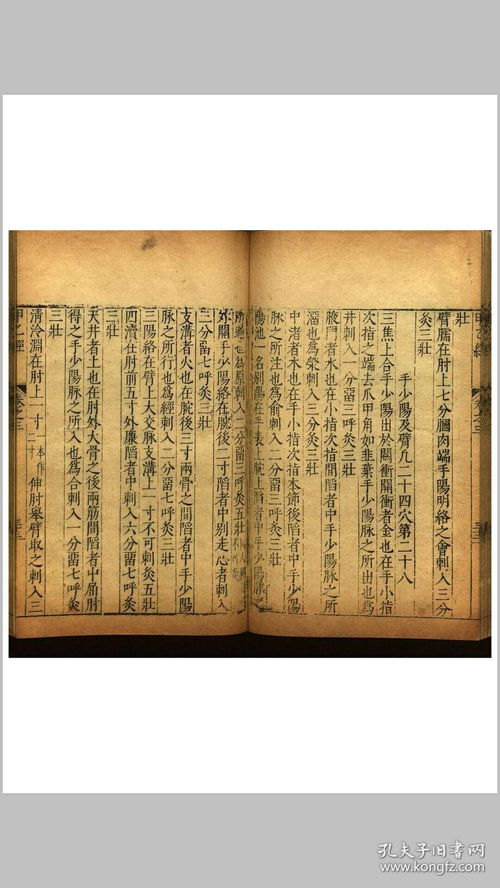 壯
臂臑在肘上七分䐃肉端手陽明絡之會刺入三分
灸三壯
手少陽及臂凡二十四穴第二十八
三焦上合手少陽出於關衝關衝者金也在手小指
次指之端去爪甲角如韭葉手少陽脉之所出也爲
井刺入一分留三呼灸三壯
腋門者水也在小指次指間陷者中手少陽脉之所
溜也爲滎刺入三分灸三壯
中渚者木也在手小指次指本節後陷者中手少陽
脉之所注也爲俞刺入二分留三呼灸三壯
陽池一名別陽在手表上腕上陷者中手少陽脉之
所過也爲原刺入二分留三呼灸五壯
外關手少陽絡在腕後二寸陷者中別走心者刺入
三分留七呼灸三壯
支溝者火也在腕後三寸兩骨之間陷者中手少陽
脉之所行也爲經刺入二分留七呼灸三壯
三陽絡在臂上大交脉支溝上一寸不可刺灸五壯
四瀆在肘前五寸外廉陷者中刺入六分留七呼灸
三壯
天井者土也在肘外大骨之後兩筋間陷者中屈肘
得之手少陽脉之所入也爲合刺入一分留七呼灸
三壯
清冷淵在肘上一寸一本作二寸伸肘舉臂取之刺入三
甲乙經 卷之三
孔夫子旧书网
www.kongfz.com